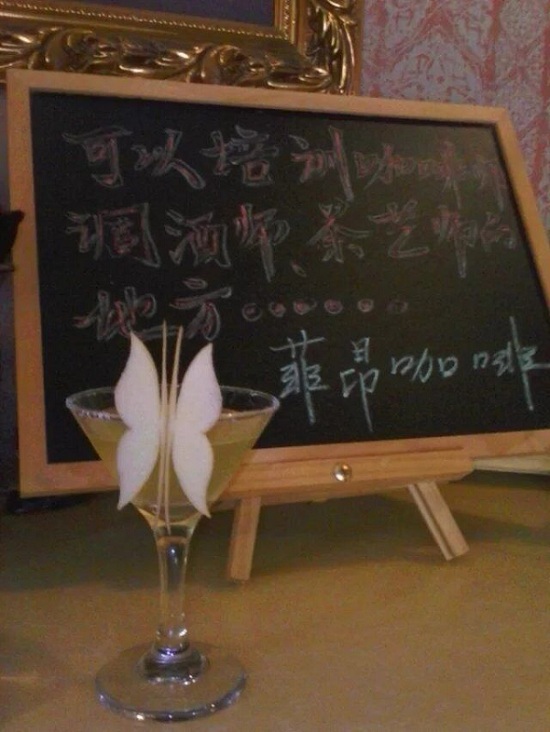 可以培训咖啡师
调酒师、茶艺师的
地方······
菲昂咖啡